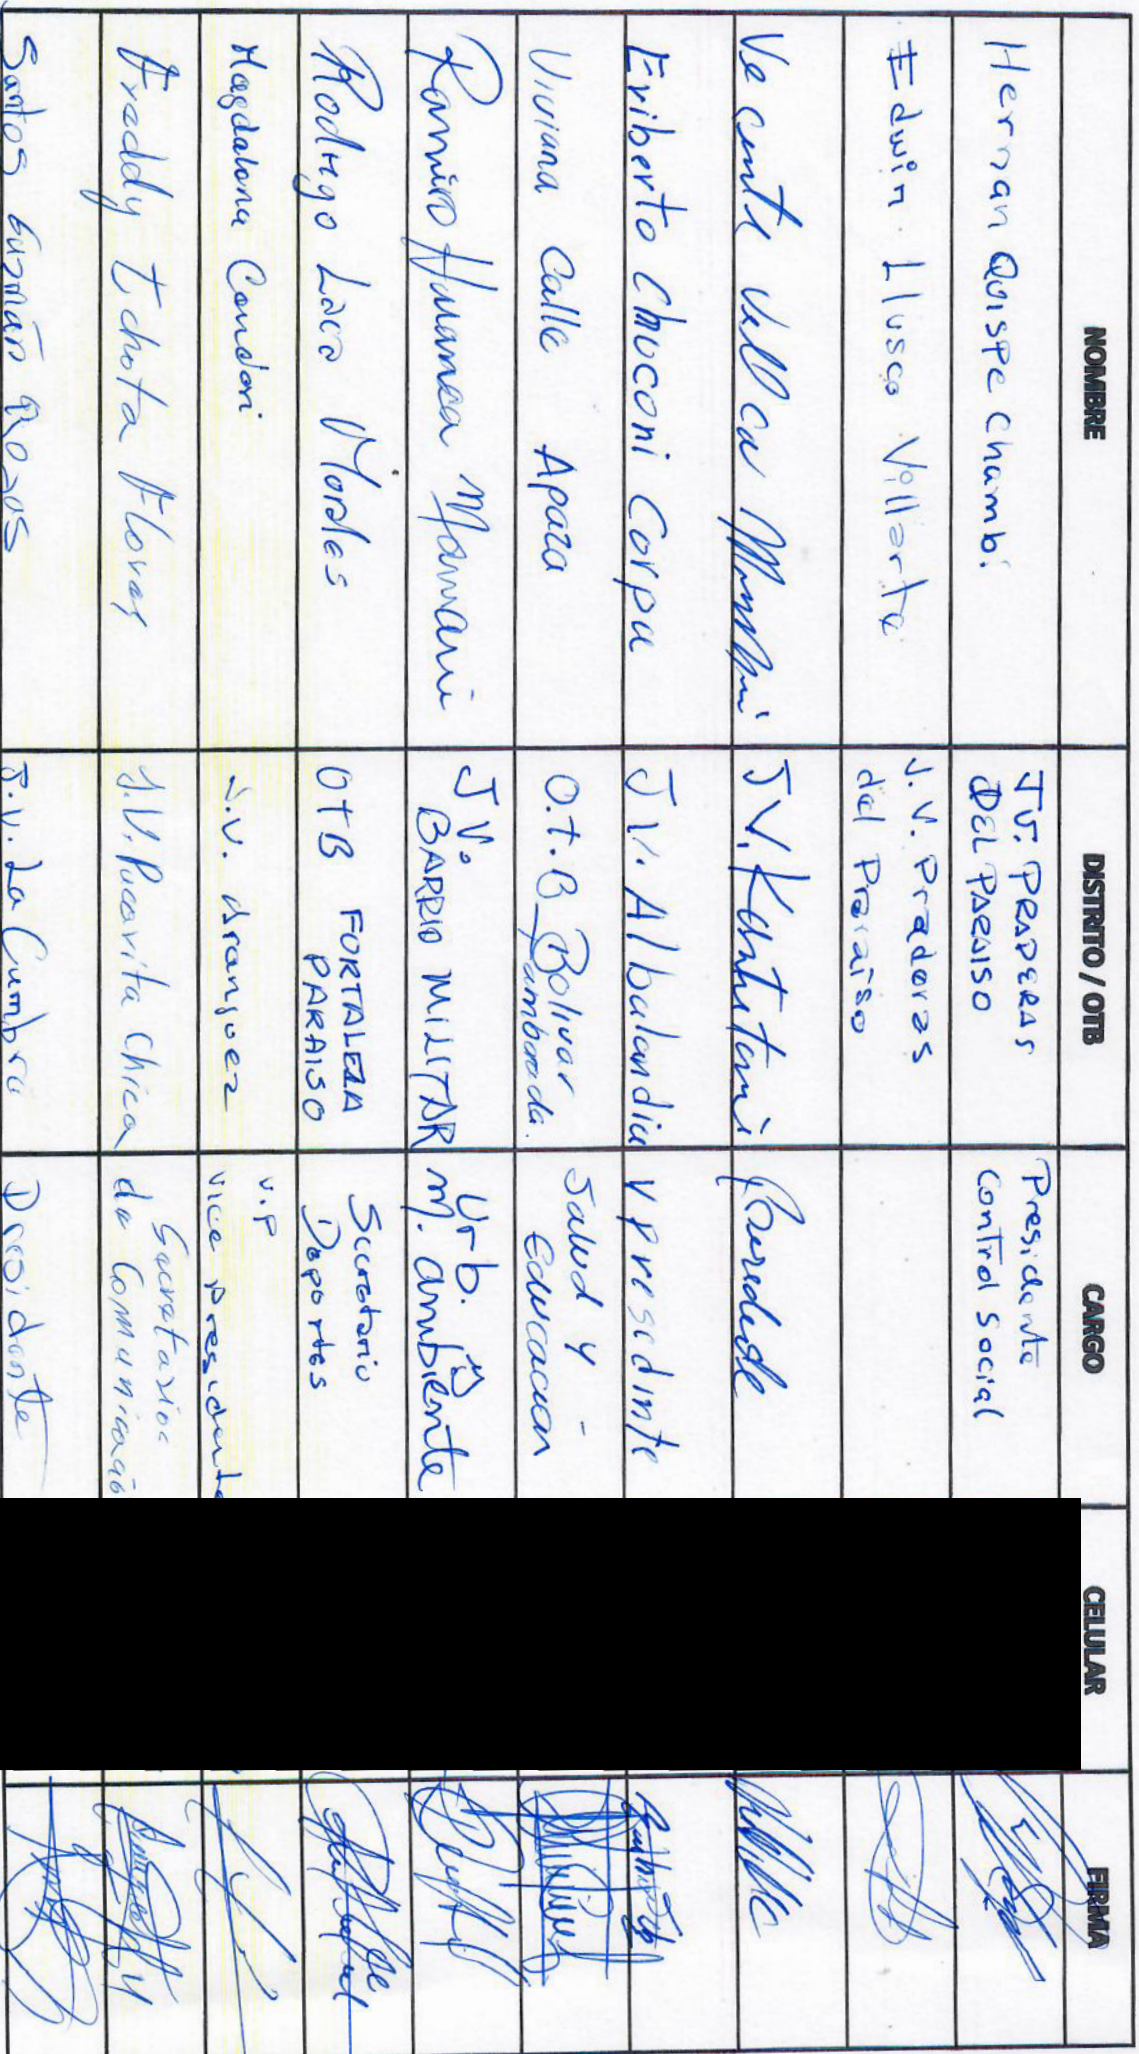 NOMBRE DISTRITO / OTB CARGO CELULAR FIRMA
Hernan Quispe Chambi J.V. PRADERAS DEL PARAISO Presidente Control Social
Edwin Llusco Villarte J.V. Praderas del Praraiso
Ve cente Vellca J.V. Kantutani
Eriberto Chuconi Corpa J.V. Albalandia V presedinte
Viviana Calle Apaza O.T.B Bolivar Tamborada. Salud y Educacion
Ramiro Huanca Mamani J V. BARRIO MILITAR Urb. y M. ambiente
Rodrigo Lara Morales OTB FORTALEZA PARAISO Secretario Deportes
Magdalena Condori J.V. Aranjuez V.P Vice presidente
Freddy Tchota Flores J.V. Pucarita Chica Secretario de Comunicació
Santos Guzmán Rojas J.V. La Cumbre Presidente